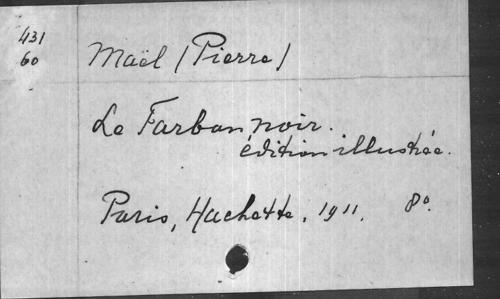 431
60
Maël (Pierre)
Le Farban noir.
édition illustrée.
Paris, Hachette, 1911. 8º.